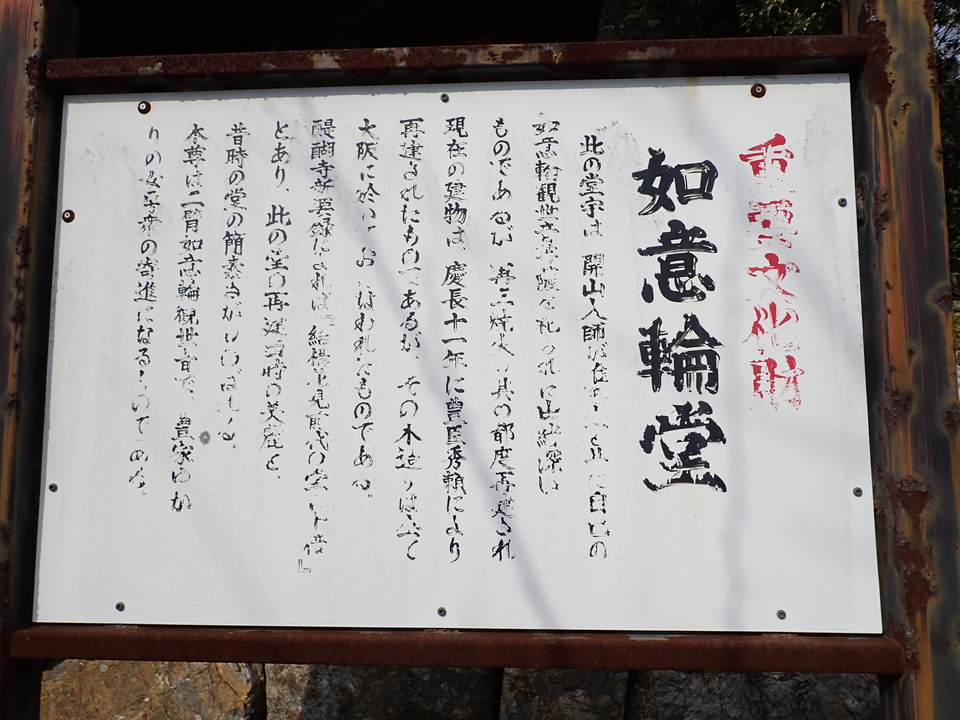 重要文化財
如意輪堂
此の堂宇は 開山大師が准 と共に自己の
如意輪観世音菩薩を祀られた由緒深い
ものであるが 再三焼失し其の都度再建され
現在の建物は、慶長十一年に豊臣秀頼により
再建されたものであるが、その木造りは全く
大阪に於いておこなわれたものである。
醍醐寺新要録によれば『結構見前代の堂 十倍』
とあり、此の堂の再建当時の美麗と、
昔時の堂の簡素さがしのばれる。
本尊は二臂如意輪観世音で、豊家ゆか
りの 衆の寄進になるものである。